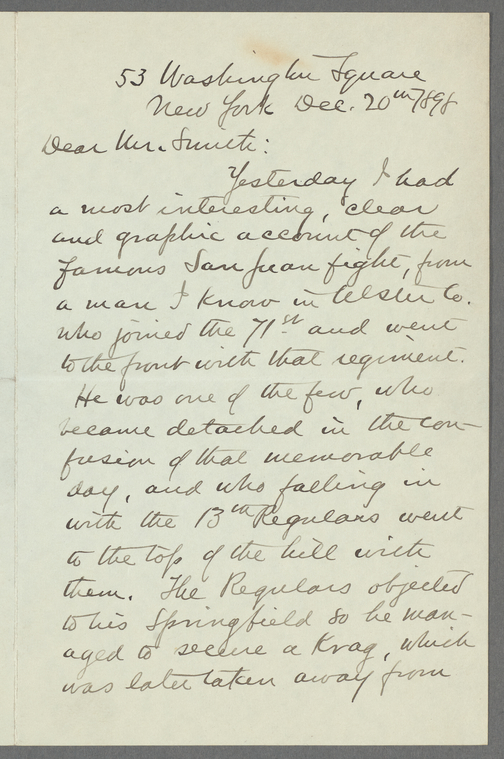 53 Washington Square
New York Dec. 20th/898
Dear Mr. Smith:
Yesterday I had
a most interesting, clear
and graphic account of the
famous San Juan fight, from
a man I know in Ulster Co.
who joined the 71st and went
to the front with that regiment.
He was one of the few, who
became detached in the con-
fusion of that memorable
day, and who falling in
with the 13th Regulars went
to the top of the hill with
them. The Regulars objected
to his Springfield so he man-
aged to secure a Krag, which
was later taken away from